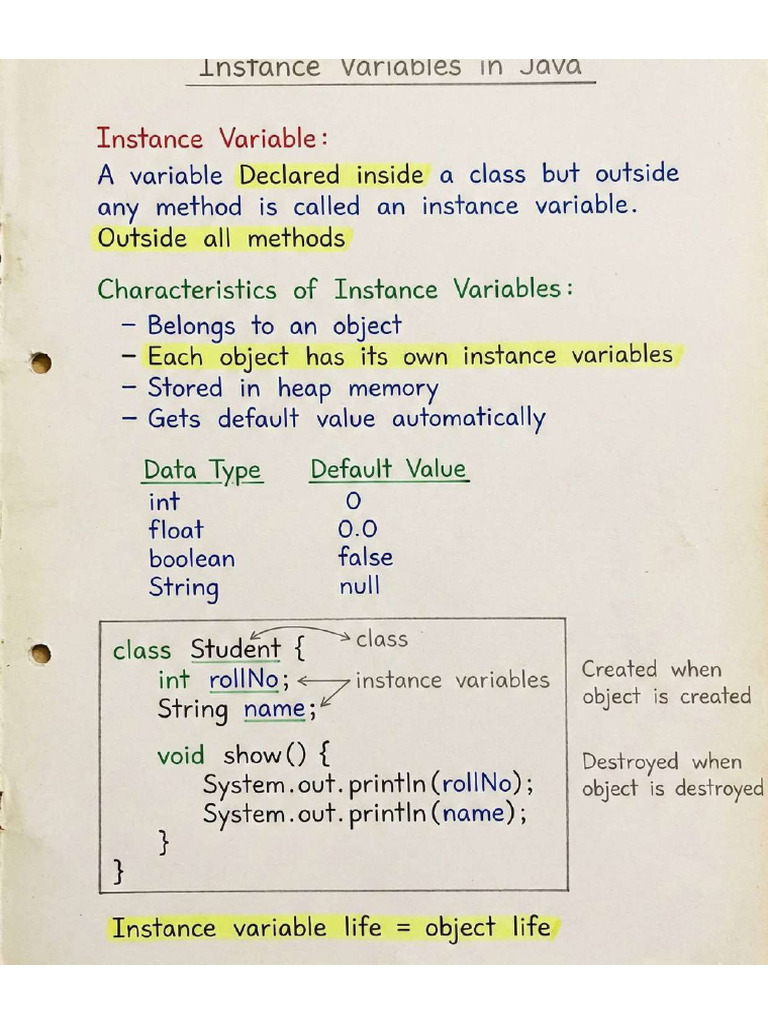 Instance Variables in Java
Instance Variable:
A variable Declared inside a class but outside
any method is called an instance variable.
Outside all methods
Characteristics of Instance Variables:
– Belongs to an object
– Each object has its own instance variables
– Stored in heap memory
– Gets default value automatically
Data Type Default Value
int 0
float 0.0
boolean false
String null
class Student { class
int rollNo; instance variables
String name;
void show() {
System.out.println(rollNo);
System.out.println(name);
}
}
Created when
object is created
Destroyed when
object is destroyed
Instance variable life = object life